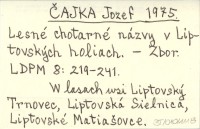 ČAJKA Jozef 1975.
Lesné chotárne názvy v Lip-
tovských holiach. – Zbor.
LDPM 8: 219-241.
W lasach wsi Liptovský
Trnovec, Liptovská Sielnica,
Liptovské Matiašovce.